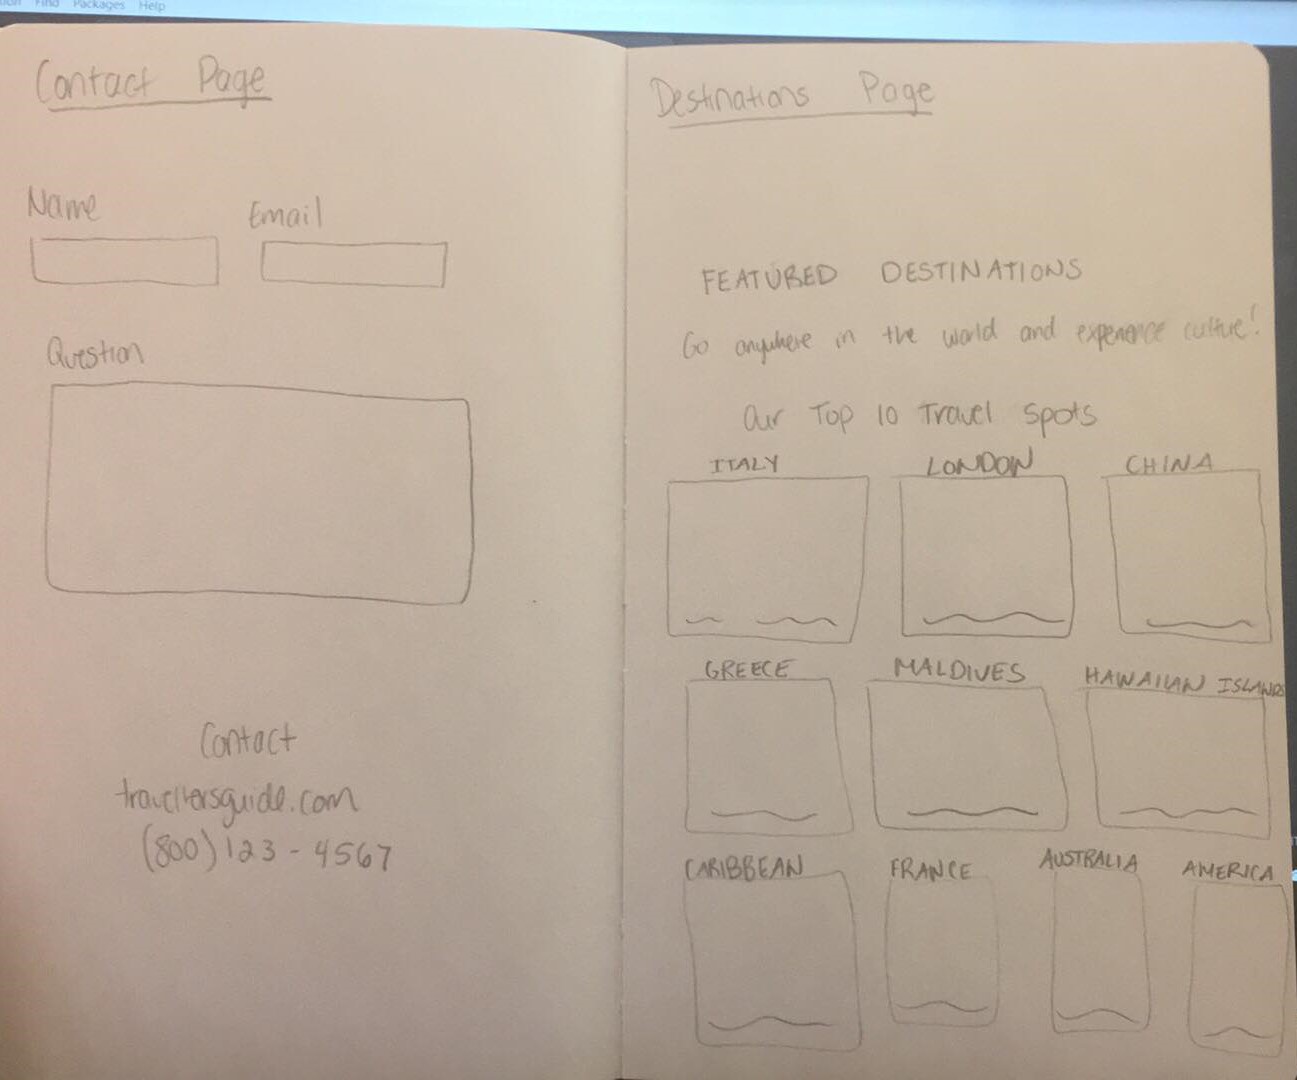 Find Packages Help
Contact Page
Name Email
Question
Contact
(800) 123-4567
Destinations Page
FEATURED DESTINATIONS
Go anywhere in the world and experience culture!
Our Top 10 Travel Spots
ITALY LONDON CHINA
GREECE MALDIVES HAWAIIAN ISLANDS
CARIBBEAN FRANCE AUSTRALIA AMERICA